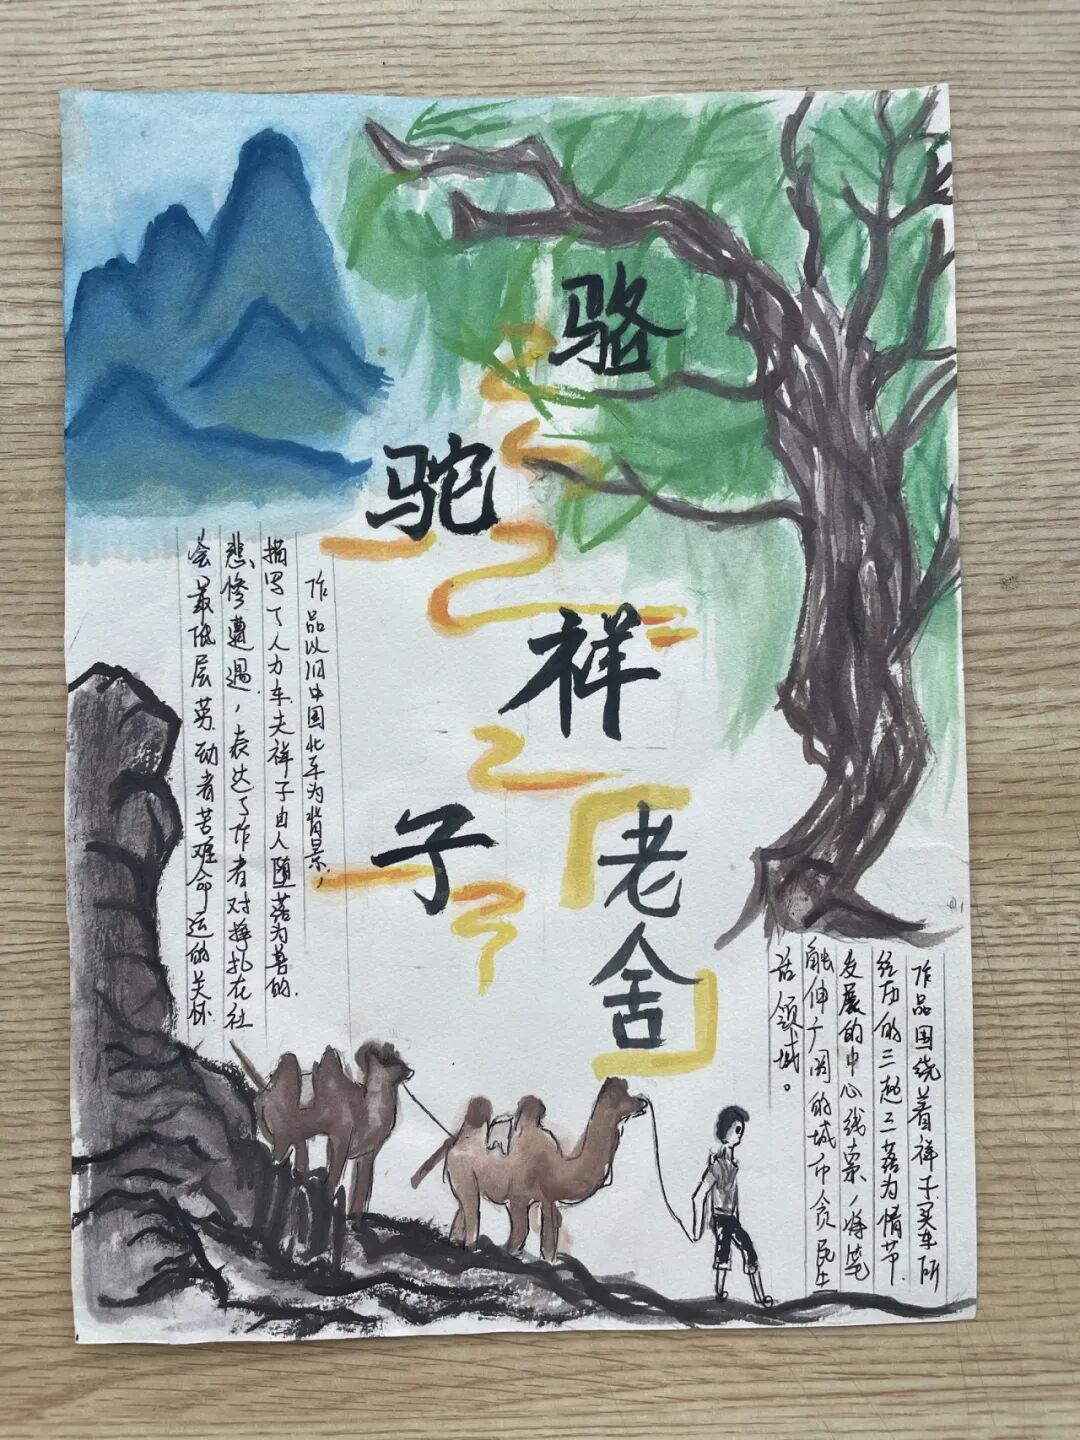 骆
驼
祥
子
老舍
作品以旧中国北平为背景，
描写了人力车夫祥子由人堕落为兽的.
悲惨遭遇，表达了作者对挣扎在社
会最低层劳动者苦难命运的关怀.
作品围绕着祥子买车所
经历的三起三落为情节.
发展的中心线索，将笔
触伸广阔的城市贫民生
活领域。